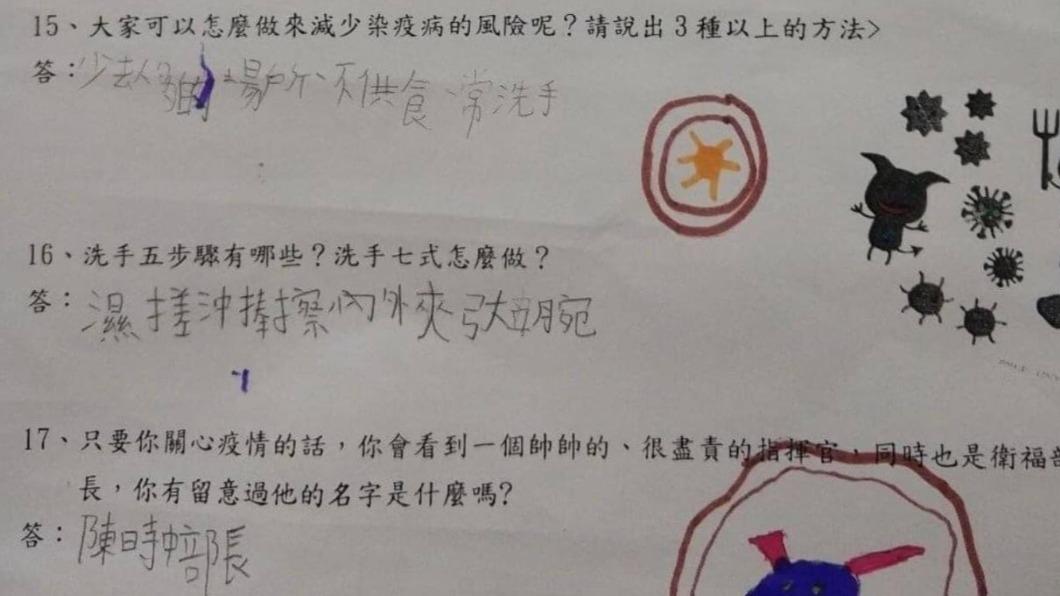 15、大家可以怎麼做來減少染疫病的風險呢？請說出3種以上的方法>
答：少去人多的場所、不供食、常洗手
16、洗手五步驟有哪些？洗手七式怎麼做？
答：濕搓沖捧擦內外夾弓大立腕
17、只要你關心疫情的話，你會看到一個帥帥的、很盡責的指揮官，同時也是衛福部
長，你有留意過他的名字是什麼嗎?
答：陳時中部長